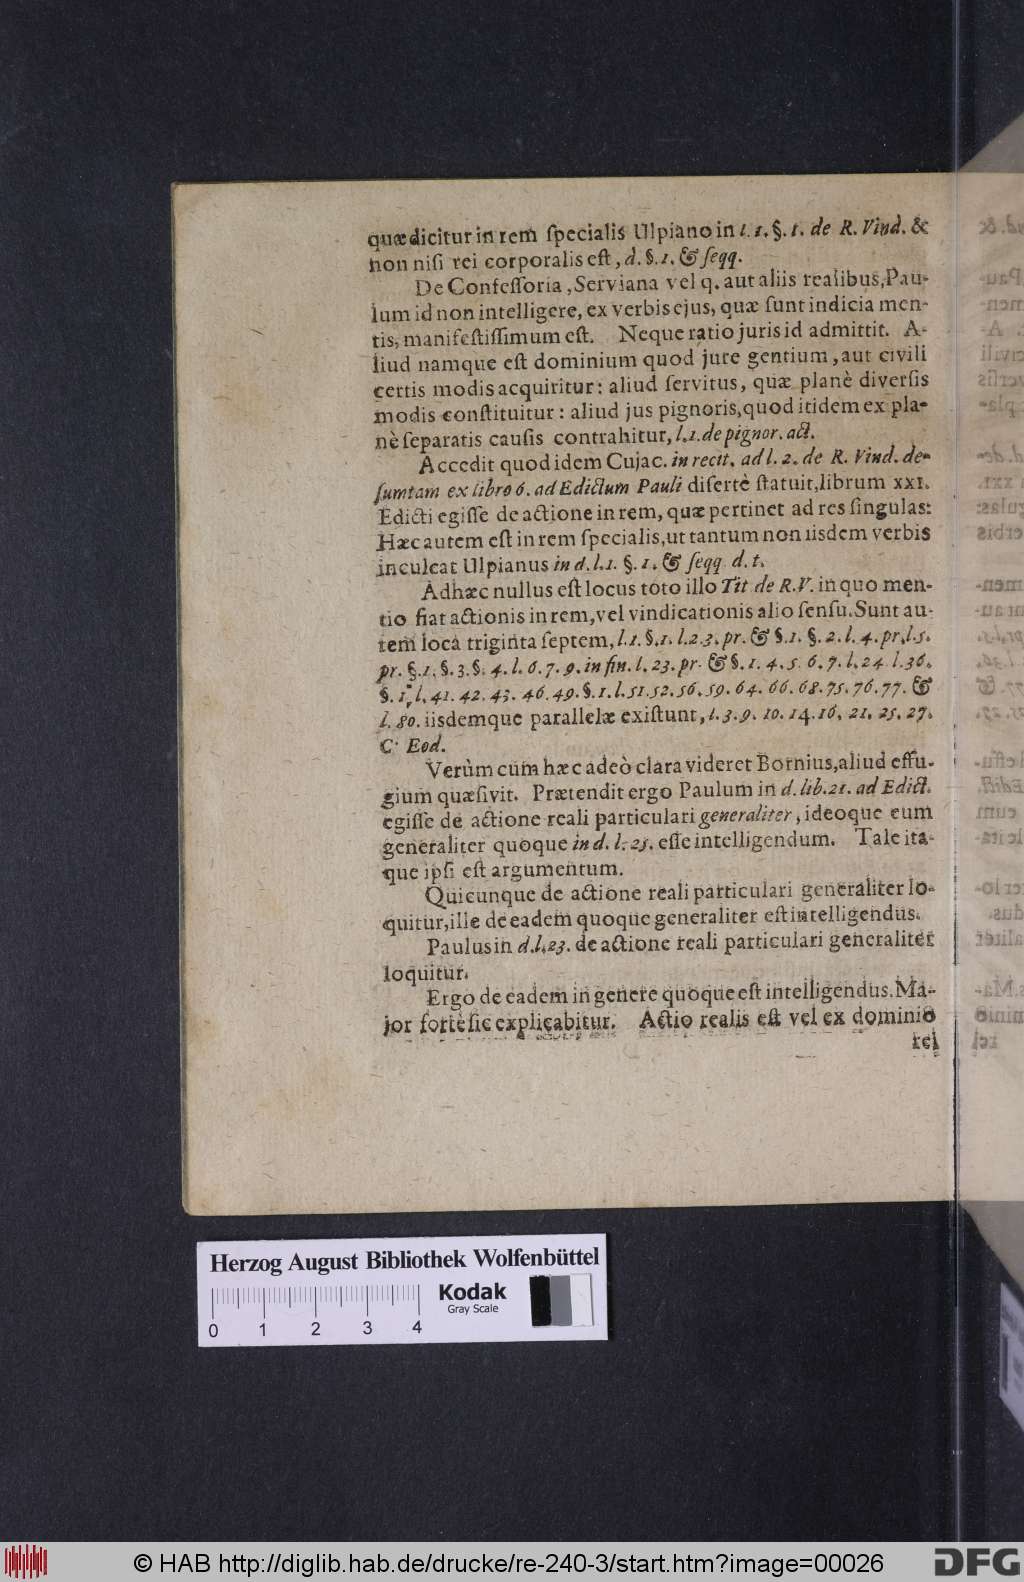 quæ dicitur in rem ſpecialis Ulpiano in l. 1. §. 1. de R. Vind. &
non niſi rei corporalis eſt, d. §. 1. & ſeqq.
De Confeſſoria, Serviana vel q. aut aliis realibus, Pau-
lum id non intelligere, ex verbis ejus, quæ ſunt indicia men-
tis, manifeſtiſſimum eſt. Neque ratio juris id admittit. A-
liud namque eſt dominium quod jure gentium, aut civili
certis modis acquiritur: aliud ſervitus, quæ planè diverſis
modis conſtituitur: aliud jus pignoris, quod itidem ex pla-
nè ſeparatis cauſis contrahitur, l. 1. de pignor. act.
Accedit quod idem Cujac. in recit. ad l. 2. de R. Vind. de-
ſumtam ex libro 6. ad Edictum Pauli diſertè ſtatuit, librum XXI.
Edicti egiſſe de actione in rem, quæ pertinet ad res ſingulas:
Hæc autem eſt in rem ſpecialis, ut tantum non iisdem verbis
inculcat Ulpianus in d. l. 1. §. 1. & ſeqq d. t.
Adhæc nullus eſt locus toto illo Tit de R. V. in quo men-
tio fiat actionis in rem, vel vindicationis alio ſenſu. Sunt au-
tem loca triginta ſeptem, l. 1. §. 1. l. 2. 3. pr. & §. 1. §. 2. l. 4. pr. l. 5.
pr. §. 1. §. 3. §. 4. l. 6. 7. 9. in fin. l. 23. pr. & §. 1. 4. 5. 6. 7. l. 24 l. 36.
§. 1. l. 41. 42. 43. 46. 49. §. 1. l. 51. 52. 56. 59. 64. 66. 68. 75. 76. 77. &
l. 80. iisdemque parallelæ exiſtunt, l. 3. 9. 10. 14. 16. 21. 25. 27.
C. Eod.
Verùm cum hæc adeò clara videret Bornius, aliud effu-
gium quæſivit. Prætendit ergo Paulum in d. lib. 21. ad Edict.
egiſſe de actione reali particulari generaliter, ideoque eum
generaliter quoque in d. l. 25. eſſe intelligendum. Tale ita-
que ipſi eſt argumentum.
Quicunque de actione reali particulari generaliter lo-
quitur, ille de eadem quoque generaliter eſt intelligendus.
Paulus in d. l. 23. de actione reali particulari generaliter
loquitur.
Ergo de eadem in genere quoque eſt intelligendus. Ma-
jor fortè ſic explicabitur. Actio realis eſt vel ex dominio
rei
Herzog August Bibliothek Wolfenbüttel
Kodak
Gray Scale
0 1 2 3 4
© HAB http://diglib.hab.de/drucke/re-240-3/start.htm?image=00026
DFG